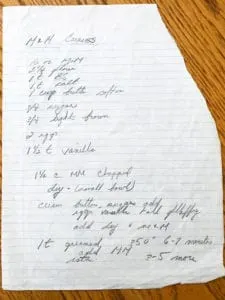 M&M Cookies
flour
1 t salt
1 cup butter soften
3/4 sugar
3/4 light brown
2 eggs
1 1/2 t vanilla
1 1/2 c MM chopped
dry - (small bowl)
cream butter, sugars, add
eggs vanilla fluffy
add dry + M&M
1 t greased 350° 6-7 minutes
add MM
3-5 more